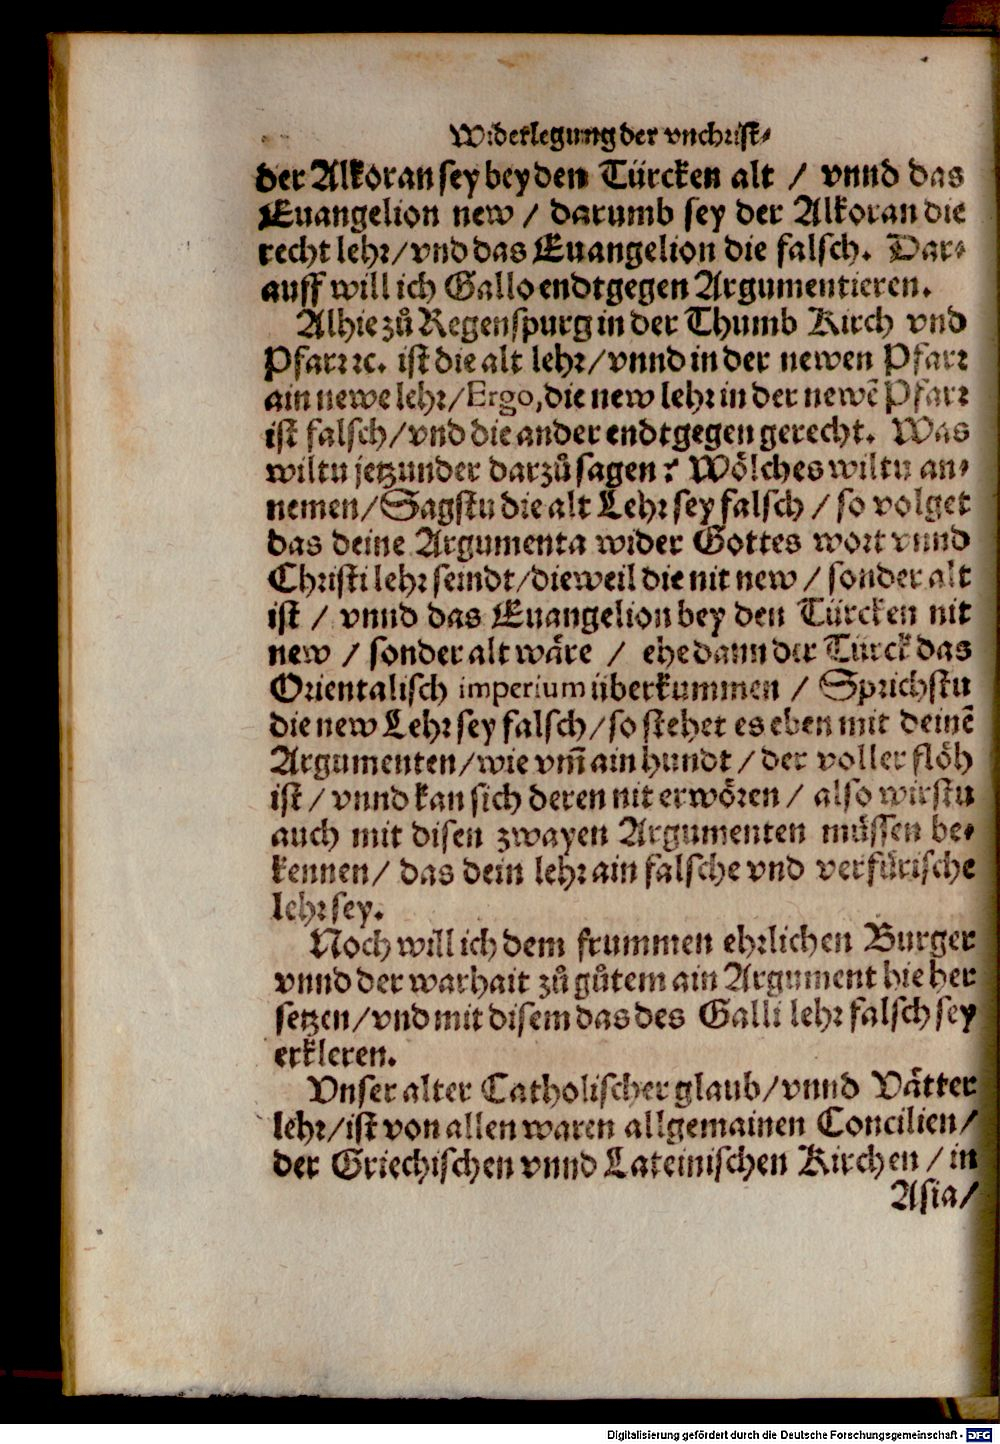 Widerlegung der vnchrist⸗
der Alkoran sey bey den Türcken alt / vnnd das
Euangelion new / darumb sey der Alkoran die
recht lehr/vnd das Euangelion die falsch. Dar⸗
auff will ich Gallo endtgegen Argumentieren.
Alhie zů Regenspurg in der Thumb Kirch vnd
Pfarr ꝛc. ist die alt lehr/vnnd in der newen Pfarr
ain newe lehr/Ergo, die new lehr in der newẽ Pfarr
ist falsch/vnd die ander endtgegen gerecht. Was
wiltu jetzunder darzů sagen? Wölches wiltu an⸗
nemen/Sagstu die alt Lehr sey falsch / so volget
das deine Argumenta wider Gottes wort vnnd
Christi lehr seindt/dieweil die nit new / sonder alt
ist / vnnd das Euangelion bey den Türcken nit
new / sonder alt wäre / ehe dann der Türck das
Orientalisch imperium überkummen / Sprichstu
die new Lehr sey falsch/so stehet es eben mit deinẽ
Argumenten/wie vm̃ ain hundt / der voller flöh
ist / vnnd kan sich deren nit erwören / also wirstu
auch mit disen zwayen Argumenten müssen be⸗
kennen/ das dein lehr ain falsche vnd verfürische
lehr sey.
Noch will ich dem frummen ehrlichen Burger
vnnd der warhait zů gůtem ain Argument hie her
setzen/vnd mit disem das des Galli lehr falsch sey
erkleren.
Vnser alter Catholischer glaub/vnnd Vätter
lehr/ist von allen waren allgemainen Concilien/
der Griechischen vnnd Lateinischen Kirchen / in
Asia/
Digitalisierung gefördert durch die Deutsche Forschungsgemeinschaft - DFG